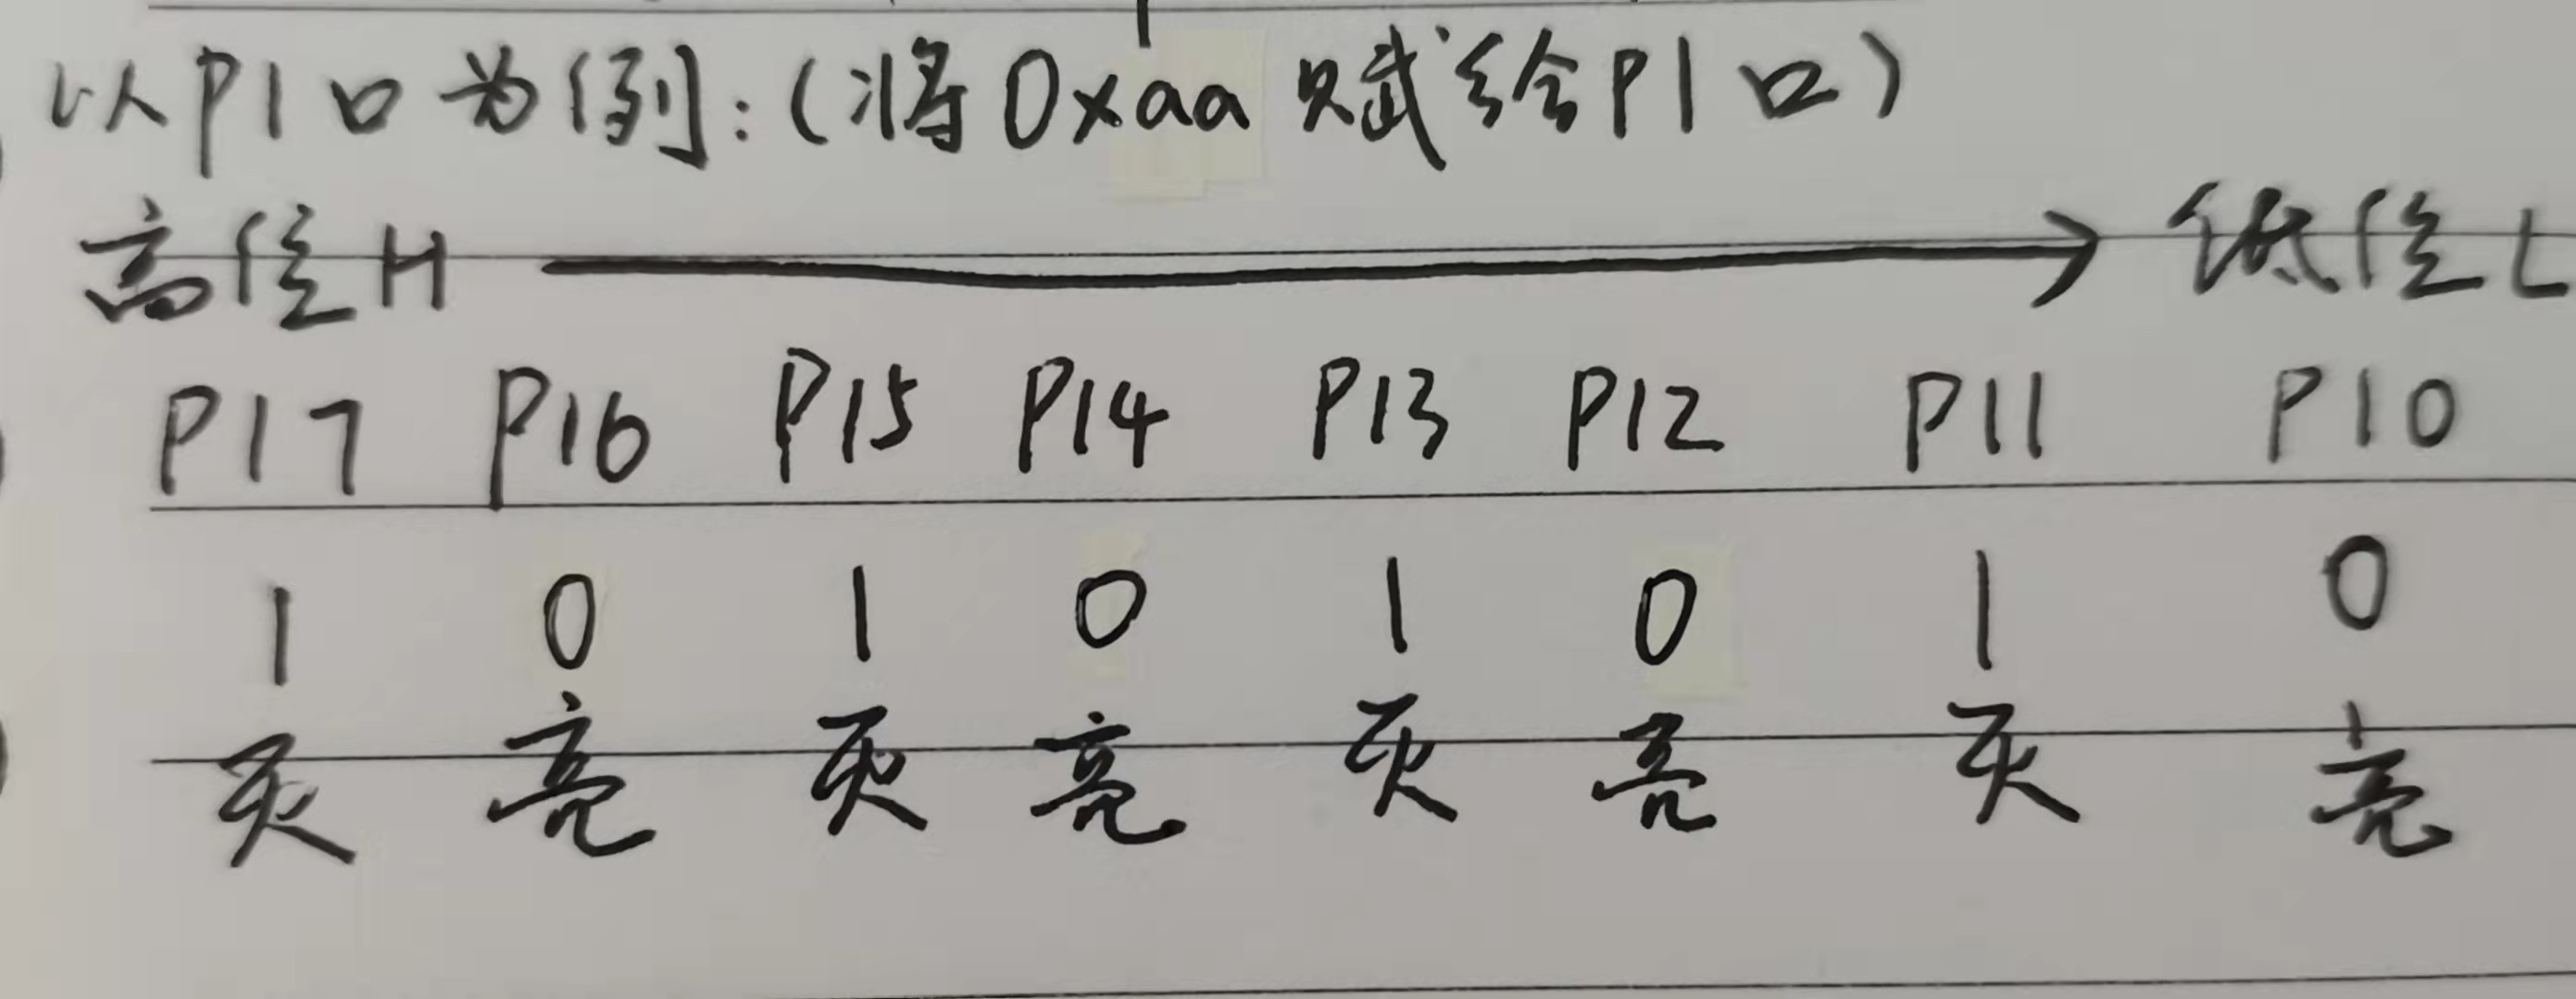 以P1口为例:(将0xaa 赋给P1口)
高位H 低位L
P17 P16 P15 P14 P13 P12 P11 P10
1 0 1 0 1 0 1 0
灭 亮 灭 亮 灭 亮 灭 亮